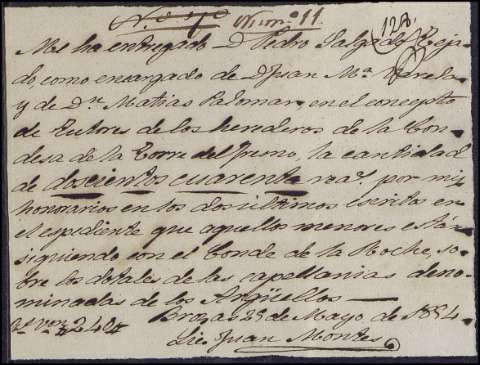 Num.º 11.
128.
Me ha entregado D. Pedro Salgado Teja-
do, como encargado de D. Juan M.ª Varela
y de D.n Matias Palomar, en el concepto
de tutores de los herederos de la Con-
desa de la Torre del Fresno, la cantidad
de doscientos cuarenta rea.s por mis
honorarios en los dos ultimos escritos en
el espediente que aquellos menores están
siguiendo con el Conde de la Roche, so-
bre los dotales de las capellanias deno-
minadas de los Argüellos
Brozas 25 de Mayo de 1854.
R.s von 240
Lic. Juan Montes